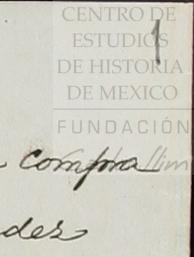 CENTRO DE
ESTUDIOS
DE HISTORIA
DE MEXICO
FUNDACIÓN
1
compra
des